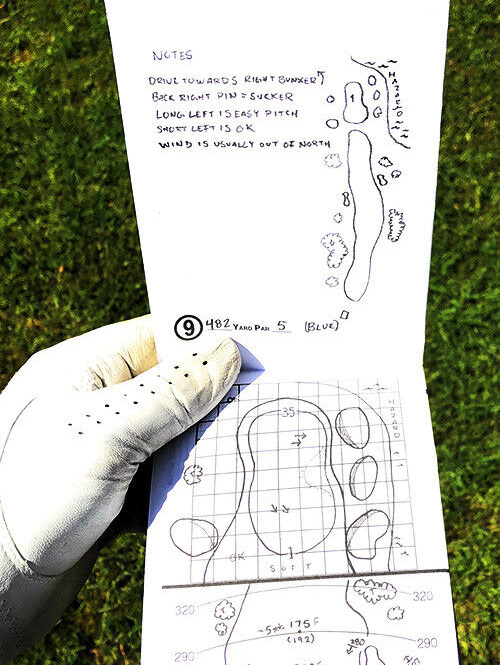 NOTES
DRIVE TOWARDS RIGHT BUNKER
BACK RIGHT PIN = SUCKER
LONG LEFT IS EASY PITCH
SHORT LEFT IS OK
WIND IS USUALLY OUT OF NORTH
HAZARD
9 482 YARD PAR 5 (BLUE)
35
HAZARD
OK
1
SOFT
320
320
175
(192)
280
290
290